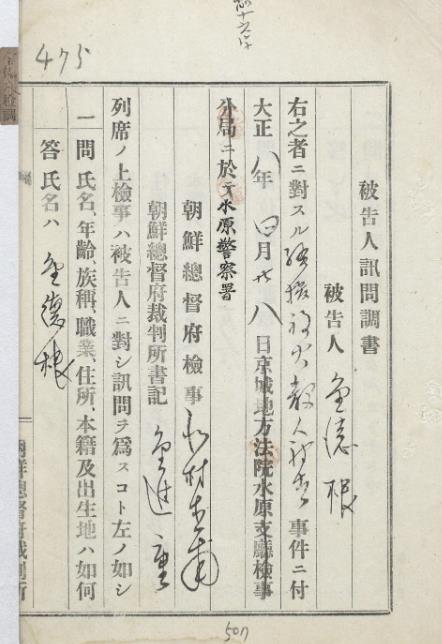 475
被告人訊問調書
被告人 金德根
右之者ニ對スル騷擾放火殺人 事件ニ付
大正八年四月廿八日京城地方法院水原支廳檢事
分局ニ於テ水原警察署
朝鮮總督府檢事
朝鮮總督府裁判所書記
列席ノ上檢事ハ被告人ニ對シ訊問ヲ爲スコト左ノ如シ
一問 氏名、年齡、族稱、職業、住所、本籍及出生地ハ如何
答 氏名ハ 金德根
朝鮮總督府裁判所
507